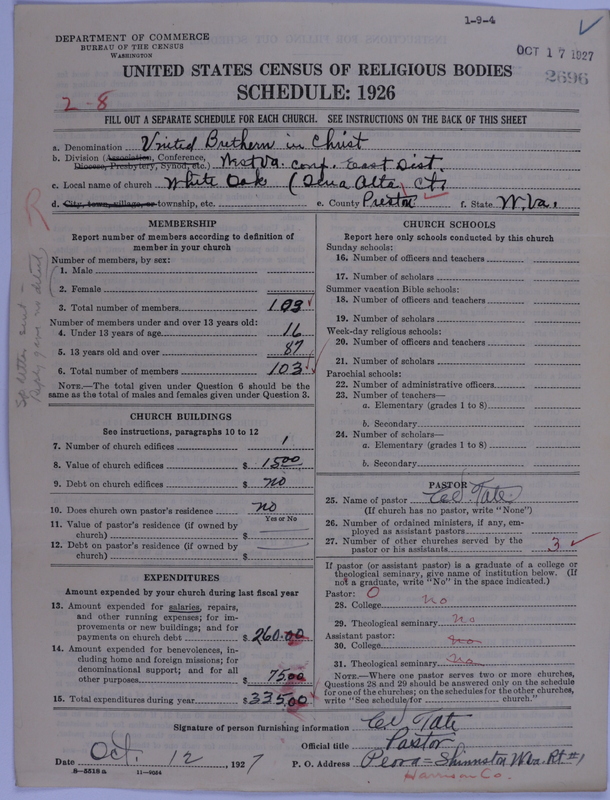 1-9-4
DEPARTMENT OF COMMERCE
BUREAU OF THE CENSUS
WASHINGTON
OCT 17 1927
2696
UNITED STATES CENSUS OF RELIGIOUS BODIES
SCHEDULE: 1926
2-8
FILL OUT A SEPARATE SCHEDULE FOR EACH CHURCH. SEE INSTRUCTIONS ON THE BACK OF THIS SHEET
a. Denomination United Brethern in Christ
b. Division (Association, Conference, Diocese, Presbytery, Synod, etc.) West Va. conf. East Dist.
c. Local name of church White Oak ( Alta ) Ct.
d. City, town, village, or township, etc. e. County Preston f. State W. Va.
MEMBERSHIP
Report number of members according to definition of
member in your church
Number of members, by sex:
1. Male
2. Female
3. Total number of members 103
Number of members under and over 13 years old:
4. Under 13 years of age 16
5. 13 years old and over 87
6. Total number of members 103
NOTE.—The total given under Question 6 should be the
same as the total of males and females given under Question 3.
CHURCH BUILDINGS
See instructions, paragraphs 10 to 12
7. Number of church edifices 1
8. Value of church edifices $ 1500
9. Debt on church edifices $ no
10. Does church own pastor's residence no
Yes or No
11. Value of pastor's residence (if owned by
church) $
12. Debt on pastor's residence (if owned by
church) $
EXPENDITURES
Amount expended by your church during last fiscal year
13. Amount expended for salaries, repairs,
and other running expenses; for im-
provements or new buildings; and for
payments on church debt $ 260.00
14. Amount expended for benevolences, in-
cluding home and foreign missions; for
denominational support; and for all
other purposes $ 75.00
15. Total expenditures during year $ 335.00
CHURCH SCHOOLS
Report here only schools conducted by this church
Sunday schools:
16. Number of officers and teachers
17. Number of scholars
Summer vacation Bible schools:
18. Number of officers and teachers
19. Number of scholars
Week-day religious schools:
20. Number of officers and teachers
21. Number of scholars
Parochial schools:
22. Number of administrative officers
23. Number of teachers—
a. Elementary (grades 1 to 8)
b. Secondary
24. Number of scholars—
a. Elementary (grades 1 to 8)
b. Secondary
PASTOR
25. Name of pastor Tate
(If church has no pastor, write "None")
26. Number of ordained ministers, if any, em-
ployed as assistant pastors
27. Number of other churches served by the
pastor or his assistants 3
If pastor (or assistant pastor) is a graduate of a college or
theological seminary, give name of institution below. (If
not a graduate, write "No" in the space indicated.)
Pastor: 0
28. College no
29. Theological seminary no
Assistant pastor:
30. College no
31. Theological seminary no
NOTE.—Where one pastor serves two or more churches,
Questions 28 and 29 should be answered only on the schedule
for one of the churches; on the schedules for the other churches,
write "See schedule for church."
Signature of person furnishing information Tate
Official title Pastor
Date Oct. 12, 1927 P. O. Address Peora = Shinnston W Va. Rt #1
Harrison Co.
8-5518 a 11-9034